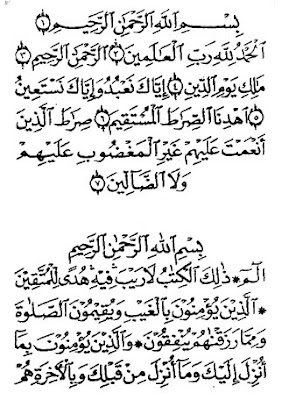 بِسْمِ اللهِ الرَّحْمٰنِ الرَّحِيْمِ ﴿١﴾
اَلْحَمْدُ لِلّٰهِ رَبِّ الْعٰلَمِيْنَ ﴿٢﴾ الرَّحْمٰنِ الرَّحِيْمِ ﴿٣﴾
مٰلِكِ يَوْمِ الدِّيْنِ ﴿٤﴾ اِيَّاكَ نَعْبُدُ وَاِيَّاكَ نَسْتَعِيْنُ
﴿٥﴾ اِهْدِنَا الصِّرَاطَ الْمُسْتَقِيْمَ ﴿٦﴾ صِرَاطَ الَّذِيْنَ
اَنْعَمْتَ عَلَيْهِمْ غَيْرِ الْمَغْضُوْبِ عَلَيْهِمْ
وَلَا الضَّآلِّيْنَ ﴿٧﴾
بِسْمِ اللهِ الرَّحْمٰنِ الرَّحِيْمِ
الٓمٓ * ذٰلِكَ الْكِتٰبُ لَا رَيْبَ فِيْهِ هُدًى لِّلْمُتَّقِيْنَ
* الَّذِيْنَ يُؤْمِنُوْنَ بِالْغَيْبِ وَيُقِيْمُوْنَ الصَّلٰوةَ
وَمِمَّا رَزَقْنٰهُمْ يُنْفِقُوْنَ * وَالَّذِيْنَ يُؤْمِنُوْنَ بِمَا
اُنْزِلَ اِلَيْكَ وَمَا اُنْزِلَ مِنْ قَبْلِكَ وَبِالْاٰخِرَةِ هُمْ